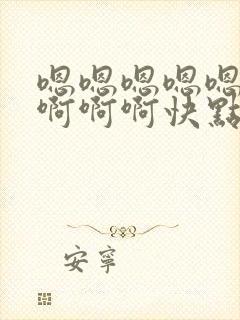 嗯嗯嗯嗯嗯
啊啊啊快點
安寧